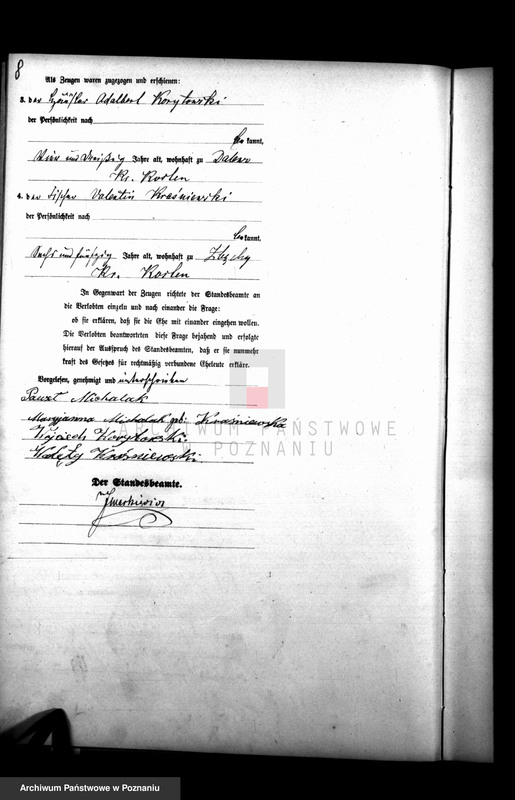 8
Als Zeugen waren zugezogen und erschienen:
3. der Häusler Adalbert Korytowski
der Persönlichkeit nach
be kannt,
vier und dreißig Jahre alt, wohnhaft zu
Kr. Kosten
4. der Tischler Valentin Kraśniewski
der Persönlichkeit nach
be kannt,
sechs und fünfzig Jahre alt, wohnhaft zu
Kr. Kosten
In Gegenwart der Zeugen richtete der Standesbeamte an
die Verlobten einzeln und nach einander die Frage:
ob sie erklären, daß sie die Ehe mit einander eingehen wollen.
Die Verlobten beantworteten diese Frage bejahend und erfolgte
hierauf der Ausspruch des Standesbeamten, daß er sie nunmehr
kraft des Gesetzes für rechtmäßig verbundene Eheleute erkläre.
Vorgelesen, genehmigt und unterschrieben
Paweł Michalak
Maryjanna Michalak Kraśniewska
Wojciech Korytowski
Walęty Kraśniewski
Der Standesbeamte.
ARCHIWUM PAŃSTWOWE
W POZNANIU
Archiwum Państwowe w Poznaniu